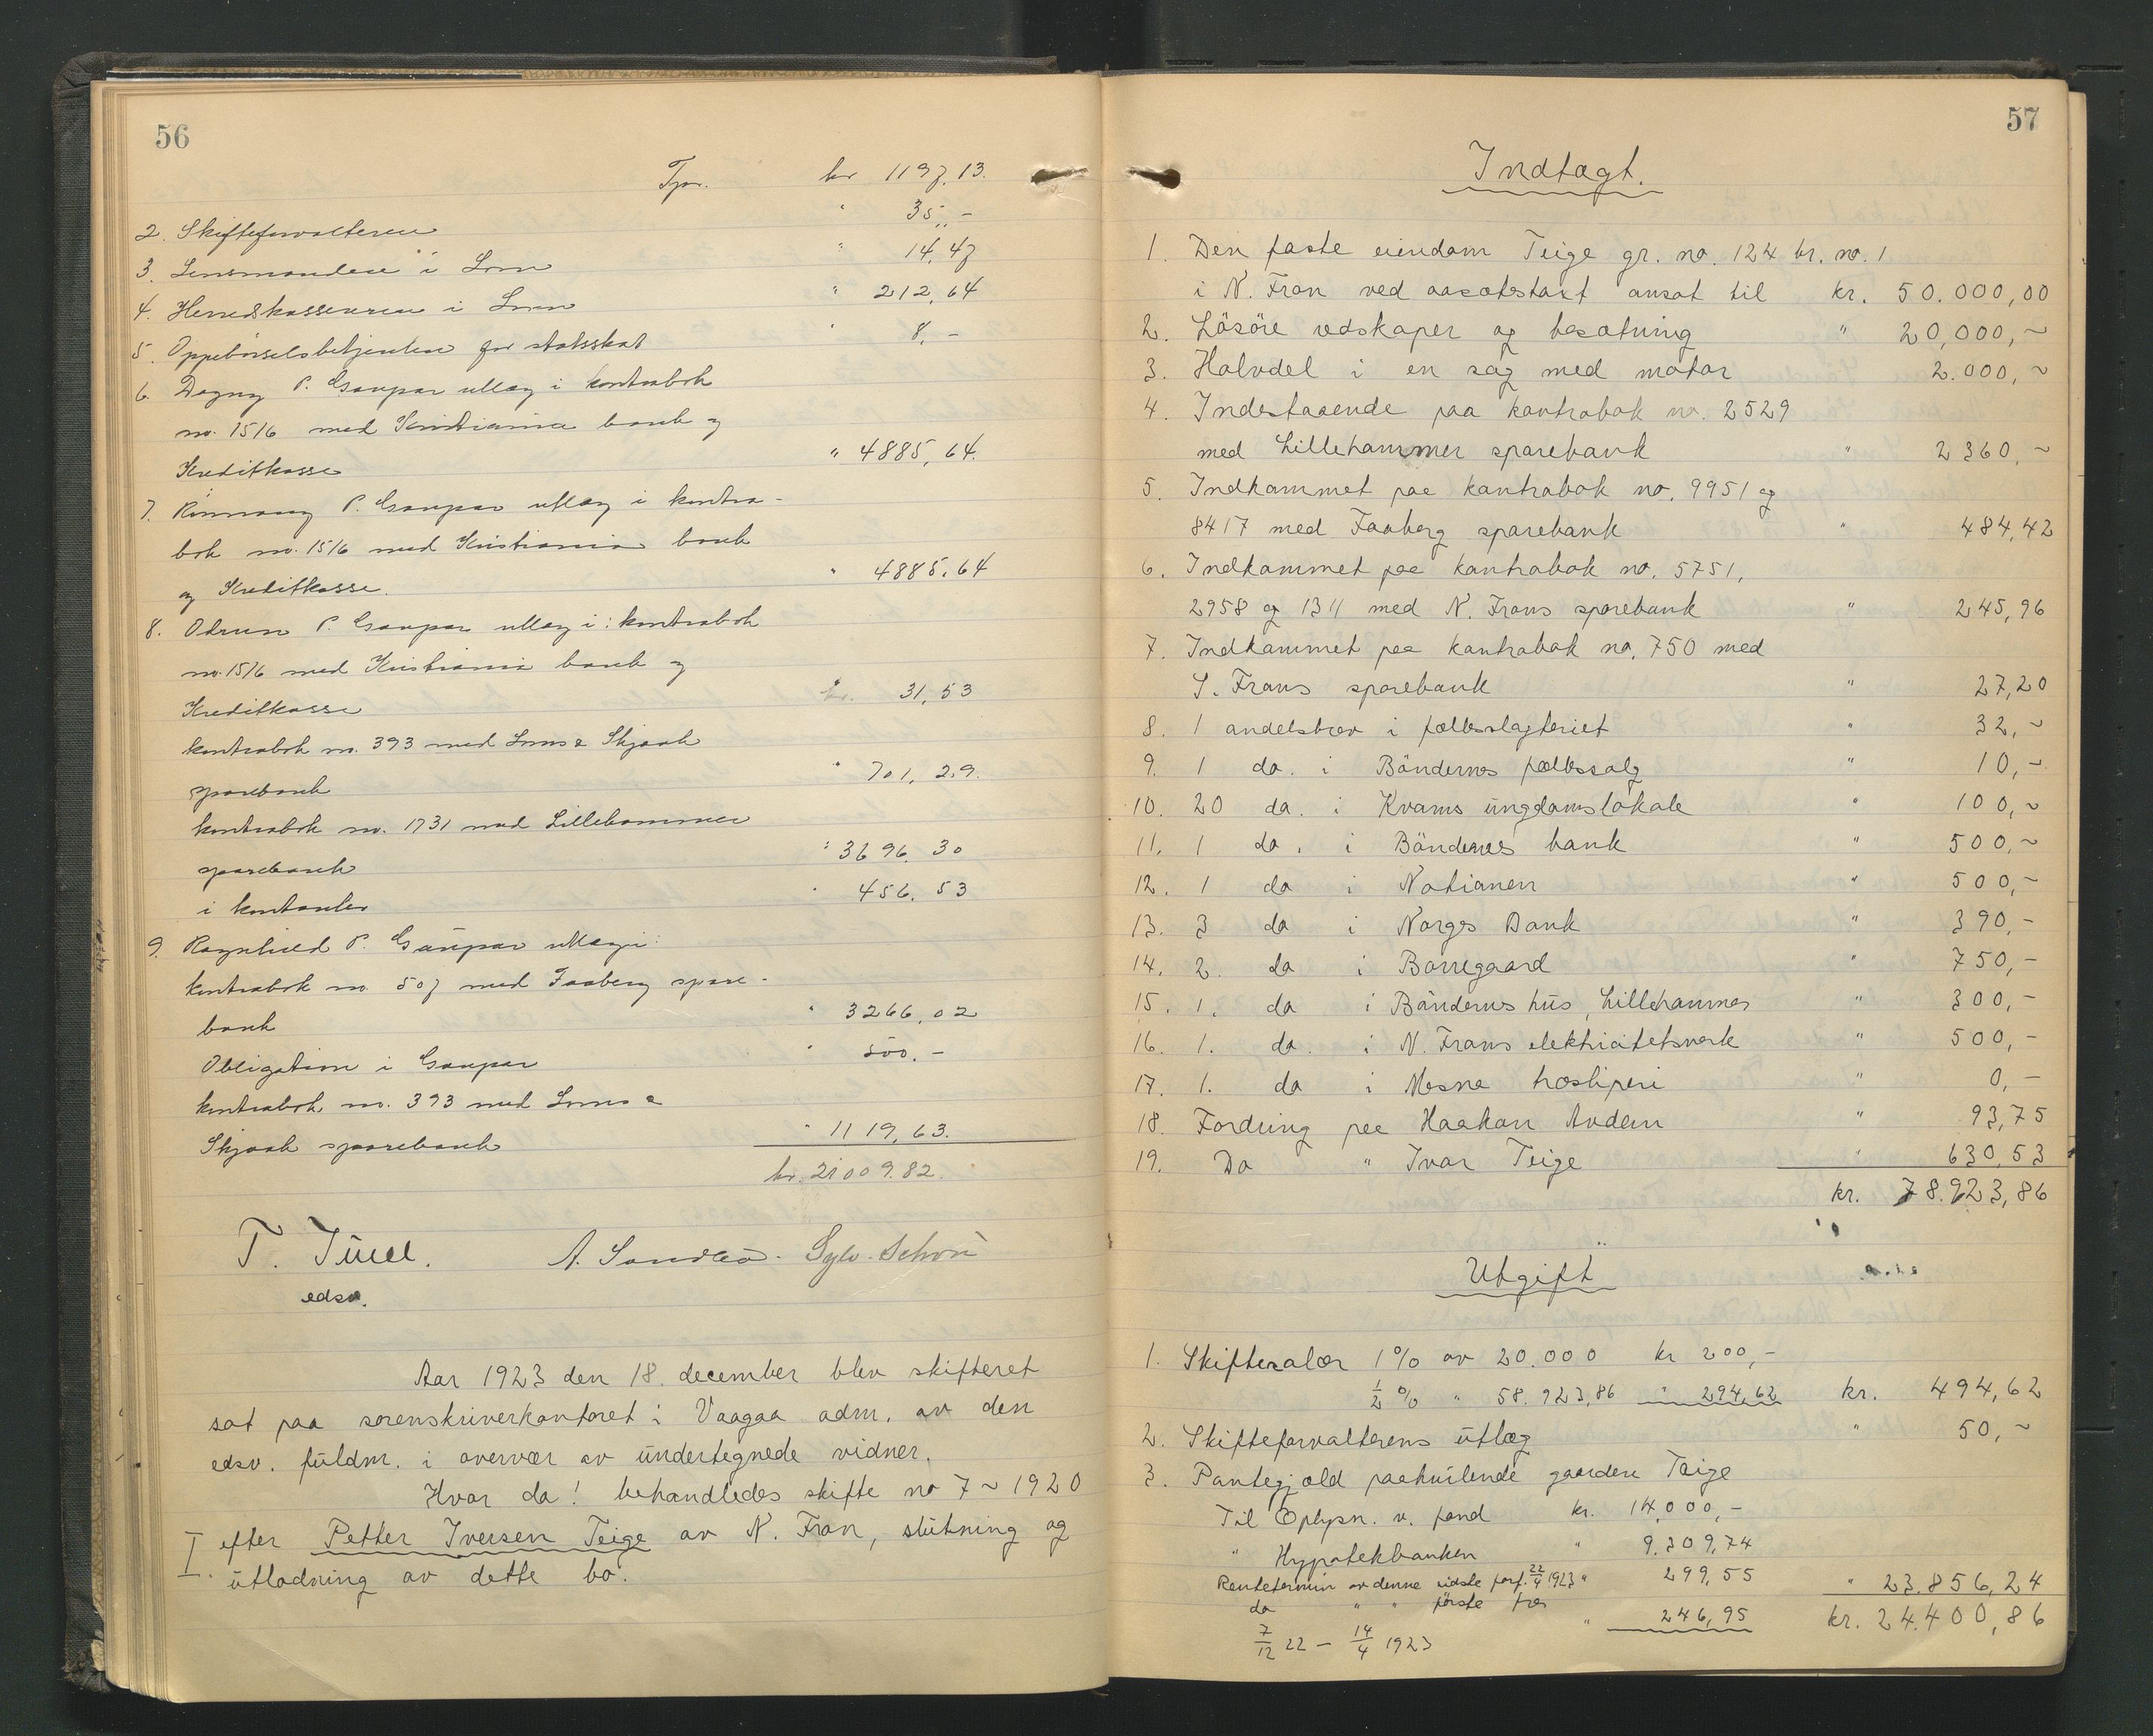 56
Tpr. kr 1197,13.
2. Skifteforvalteren " 35,-
3. Lensmanden i Lom " 14,47
4. Herredskassereren i Lom " 212,64
5. Oppebørselsbetjenten for statsskat " 8,-
6. Dagny P. Gaupar utlæg i kontrabok
no. 1516 med Kristiania bank og
Kreditkasse " 4885,64.
7. Rønnaug P. Gaupar utlæg i kontra-
bok no. 1516 med Kristiania bank
og Kreditkasse. " 4885,64
8. Odrun P. Gaupar utlæg i: kontrabok
no. 1516 med Kristiania bank og
Kreditkasse kr. 31,53
kontrabok no. 393 med Loms & Skjaak
sparebank " 701,29.
kontrabok no. 1731 med Lillehammer
sparebank " 3696,30
i kontanter " 456,53
9. Ragnhild P. Gaupar utlæg i:
kontrabok no. 507 med Faaberg spare-
bank " 3266,02
Obligation i Gaupar " 500.-
kontrabok no. 393 med Loms &
Skjaak sparebank " 1119,63.
kr. 21009.82.
T. Juell. A. Sandbo. Sylv. Schou
edsv.
Aar 1923 den 18. december blev skifteret
sat paa sorenskriverkontoret i Vaagaa adm. av den
edsv. fuldm. i overvær av undertegnede vidner.
Hvor da! behandledes skifte no 7 ~ 1920
I. efter Petter Iversen Teige av N. Fron, slutning og
utlodning av dette bo.
57
Indtægt.
1. Den faste eiendom Teige gr. no. 124 br. no. 1
i N. Fron ved aasætestakt ansat til kr. 50.000,00
2. Løsøre redskaper og besætning " 20,000,~
3. Halvdel i en sag med motor 2.000,~
4. Indestaaende paa kontrabok no. 2529
med Lillehammer sparebank " 2360,~
5. Indkommet paa kontrabok no. 9951 og
8417 med Faaberg sparebank " 484,42
6. Indkommet paa kontrabok no. 5751,
2958 og 1311 med N. Frons sparebank " 245,96
7. Indkommet paa kontrabok no. 750 med
S. Frons sparebank " 27,20
8. 1 andelsbrev i fællesslagteriet " 32,~
9. 1 do. i Bøndernes fællessalg " 10,~
10. 20 do. i Kvams ungdomslokale " 100,~
11. 1 do. i Bøndernes bank " 500,~
12. 1 do i Nationen " 500,~
13. 3 do i Norges Bank " 390,-
14. 2. do i Borregaard " 750,-
15. 1. do i Bøndernes hus, Lillehammer " 300,-
16. 1. do. i N. Frons elektricitetsverk " 500,-
17. 1. do i Mesna træsliperi " 0,-
18. Fordring paa Haakon Andem " 93,75
19. Do " Ivar Teige " 630,53
kr. 78.923,86
Utgift
1. Skiftesalær 1% av 20.000 kr 200,-
½ % " 58.923,86 " 294,62 kr. 494,62
2. Skifteforvalterens utlæg " 50,~
3. Pantegjæld paahvilende gaarden Teige
Til Oplysn. v. fond kr. 14,000,-
" Hypotekbanken " 9.309,74
Rentetermin av denne sidste forf. 22/4 1923 " 299,55 " 23.856,24
do " " første fra
7/12 22 – 14/4 1923 " 246,95 kr. 24.400,86